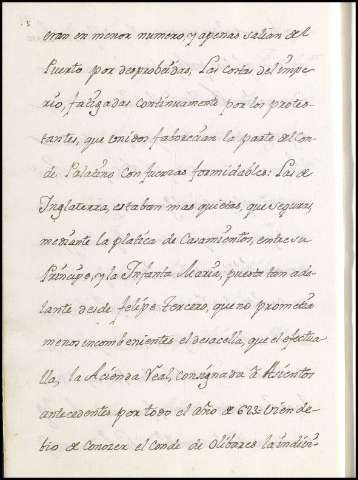 eran en menor numero, y apenas salian del
Puerto por desprobeidas, Las cortes del impe-
rio, fatigadas continuamente por los protes-
tantes, que unidos faborecian la parte del Con-
de Palatino con fuerzas formidables: Las de
Inglaterra, estaban mas quietas, que seguras,
mediante la platica de Casamientos, entre su
Principe, y la Infanta Maria, puesta tan ade-
lante desde felipe tercero, que no prometia
menos incombenientes el desacella, que el efectua-
lla, la Acienda Real, consignada à Asientos
antecedentes por todo el año de 623. Vien de-
bio de Conozer el Conde de Olibares la indivi-